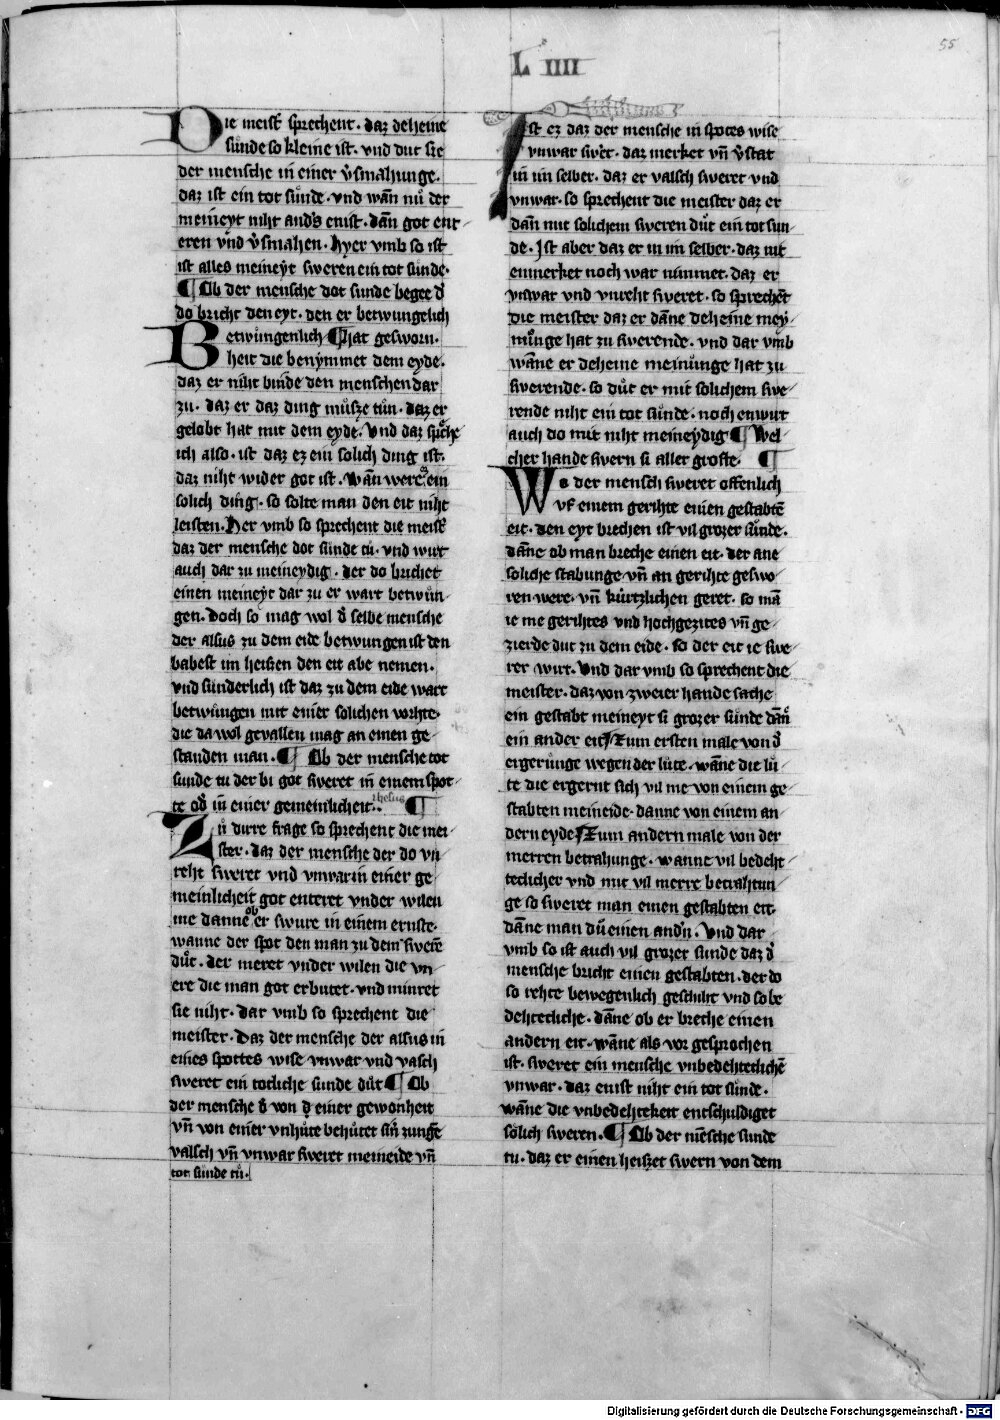 55
L IIII
Die meist̄ sprechent · daz deheine
sůnde so kleine ist · vnd dut sie
der mensche in einer v̓smahunge ·
daz ist ein tot sůnde · vnd wān nů der
meineyt niht anders enist · dān got ent
eren vnd v̓smahen · hyer vmb so ist
ist alles meineyt sweren ein tot sůnde ·
¶ Ob der mensche dot sunde begee d̓
do bricht den eyt · den er betwungelich
Betwůngenlich ¶ hat gesworn ·
heit die benymmet dem eyde ·
daz er niht binde den menschen dar
zu · daz er daz ding můsze tůn · daz er
gelobt hat mit dem eyde · Vnd daz sp̄che
ich also · ist daz ez ein solich ding ist ·
daz niht wider got ist · wān were ez ein
solich ding · so solte man den eit niht
leisten · Her vmb so sprechent die meist̄
daz der mensche dot sůnde tů · vnd wirt
auch dar zu meineydig · der do brichet
einen meineyt dar zu er wart betwůn
gen · Doch so mag wol d̓ selbe mensche
der alsus zu dem eide betwungen ist den
babest im heißen den eit abe nemen ·
vnd sůnderlich ist daz zu dem eide wart
betwůngen mit einer solichen vorhte ·
die da wol gevallen mag an einen ge
standen man · ¶ Ob der mensche tot
sunde tu der bi got sweret in einem spot
te od̓ in einer gemeinlicheit · ¶
Zů dirre frage so sprechent die mei
ster · daz der mensche der do vn
reht sweret vnd vnwar in einer ge
meinlicheit got enteret vnder wilen
me danne ob er swure in einem ernste ·
wanne der spot den man zu dem swerē
důt · der meret vnder wilen die vn
ere die man got erbutet · vnd minret
sie niht · dar vmb so sprechent die
meister · Daz der mensche der alsus in
eines spottes wise vnwar vnd valsch
sweret ein totliche sunde důt ¶ Ob
der mensche d̓ von d̓ einer gewonheit
vn̄ von einer vnhůte behůtet sin̄ zunge
valsch vn̄ vnwar sweret meineide vn̄
tot sůnde tů ·
Ist ez daz der mensche in spotes wise
vnwar swer̓t · daz merket vn̄ v̓stat
in im selber · daz er valsch sweret vnd
vnwar · so sprechent die meister daz er
dān mit solichem sweren důt ein tot sun
de · Ist aber daz er in im selber · daz nit
enmerket noch war nimmet · daz er
vnwar vnd vnreht sweret · so sprechēt
die meister daz er dāne deheine mey
nůnge hat zu swerende · vnd dar vmb
wāne er deheine meinůnge hat zu
swerende · so důt er mit solichem swe
rende niht ein tot sůnde · noch enwirt
auch do mit niht meineydig ¶ Wel
cher hande swern si aller groste · ¶
Was der mensch sweret offenlich
vf einem gerihte einen gestabtē
eit · den eyt brechen ist vil grozer sůnde ·
dāne ob man breche einen eit · der ane
soliche stabunge vn̄ an gerihte geswo
ren were · vn̄ kůrtzlichen geret · so mā
ie me gerihtes vnd hochgezites vn̄ ge
zierde dut zu dem eide · so der eit ie swe
rer wirt · Vnd dar vmb so sprechent die
meister · daz von zweier hande sache
ein gestabt meineyt si grozer sůnde dān̄
ein ander eit / Zum ersten male von d̓
ergerůnge wegen der lůte · wāne die lů
te die ergernt sich vil me von einem ge
stabten meineide · danne von einem an
dern eyde / Zum andern male von der
merren betrahunge · wanne vil bedeht
teclicher vnd mit vil merre betrahtun
ge so sweret man einen gestabten eit ·
dāne man dů einen and̓n · Vnd dar
vmb so ist auch vil grozer sunde daz d̓
mensche bricht einen gestabten · der do
so rehte bewegenlich geschiht vnd so be
dehteclliche · dāne ob er breche einen
andern eit · wāne als vor gesprochen
ist · sweret ein mensche vnbedehteclichē
vnwar · daz enist niht ein tot sůnde ·
wāne die vnbedehtekeit entschuldiget
solich sweren · ¶ Ob der mēsche sunde
tu · daz er einen heißet swern von dem
Digitalisierung gefördert durch die Deutsche Forschungsgemeinschaft - DFG